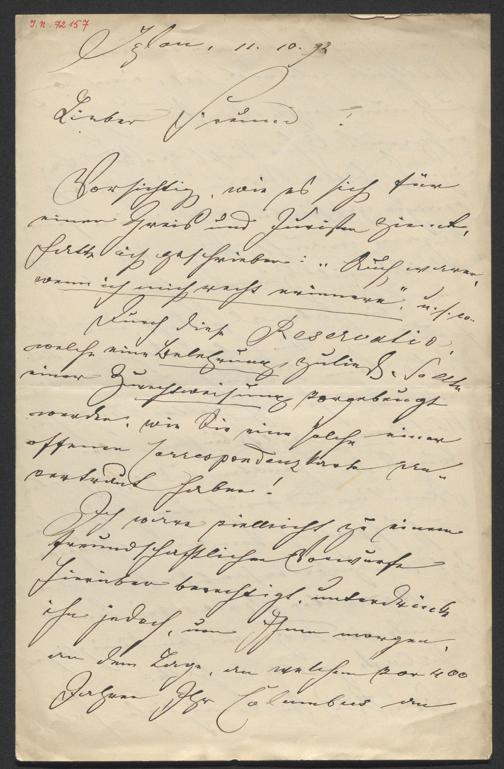 J.N. 72157
Iglau, 11. 10. 92
Lieber Freund!
Vorsichtig, wie es sich für
einen Greis und Juristen ziemt,
hatte ich geschrieben: „Auch waren,
wenn ich mich recht erinnere", u.s.w.
Durch diese Reservatio,
welche eine Belehrung zuließ, sollte
einer Zurechtweisung vorgebeugt
werden, wie Sie eine solche einer
offenen Correspondenzkarte an-
vertraut haben!
Ich wäre vielleicht zu einem
freundschaftlichen Vorwurfe
hierüber berechtigt, unterdrücke
ihn jedoch, um Ihnen morgen,
an dem Tage, an welchem vor 400
Jahren Ihr Columbus an